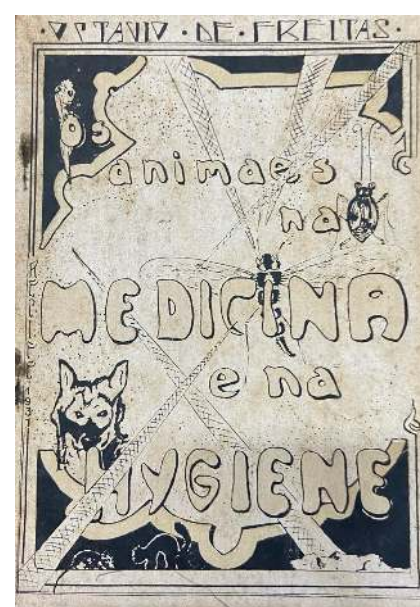 · OCTAVIO · DE · FREITAS ·
Os
animaes
na
MEDICINA
e na
HYGIENE